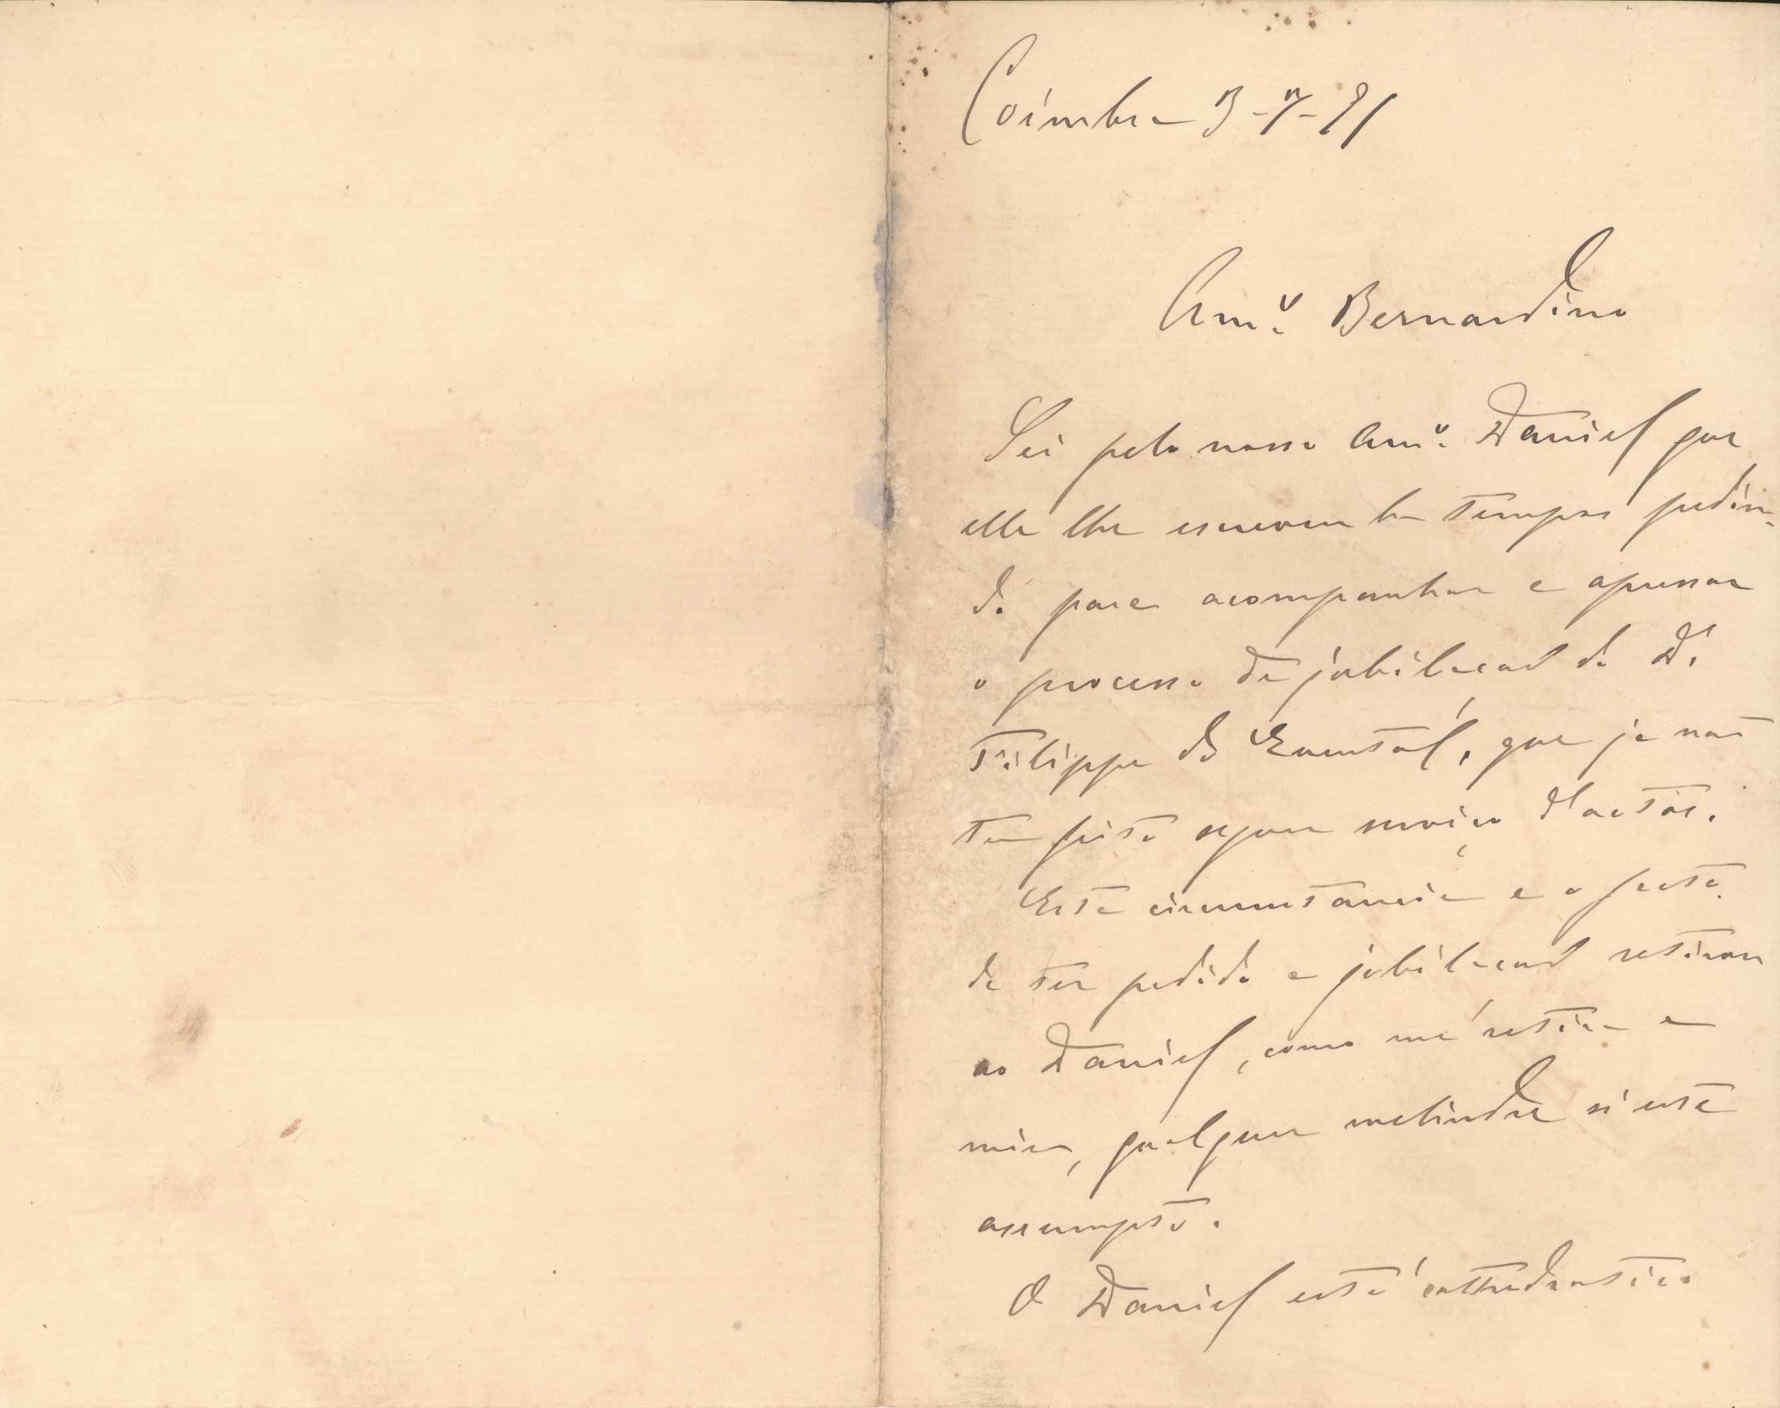 Coimbra 3-7-91
Am.º Bernardino
Sei pelo nosso Am.º Daniel que
elle lhe escreveu ha tempos pedin-
do para acompanhar e apressar
o processo de jubilacaõ do D.r
Filippe do Quental, que ja naõ
tem feito agora serviço d'actos.
Esta circumstancia e o facto
de ter pedido a jubilacaõ retiram
ao Daniel, como me retira a
mim, qualquer melindre n'este
assumpto.
O Daniel está cathedratico